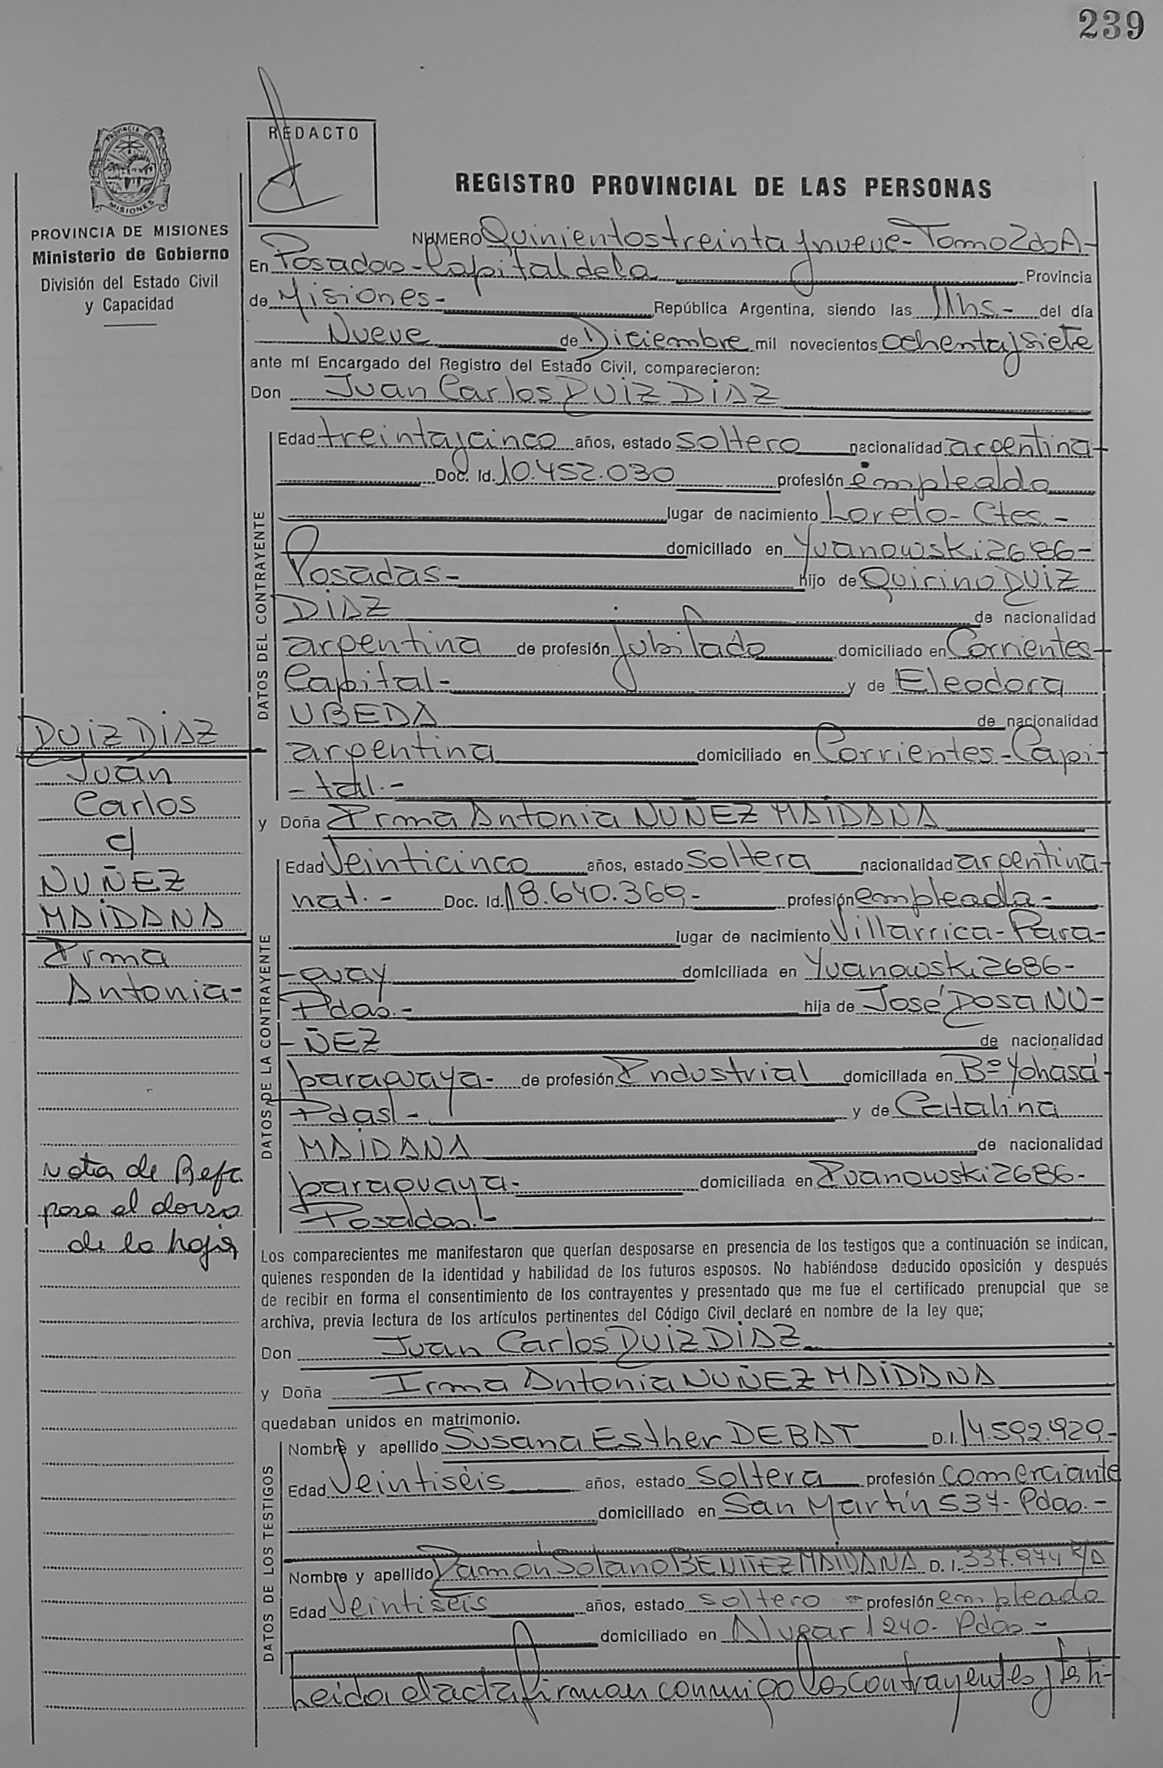 239
PROVINCIA DE MISIONES
PROVINCIA DE MISIONES
Ministerio de Gobierno
División del Estado Civil
y Capacidad
REDACTO
REGISTRO PROVINCIAL DE LAS PERSONAS
NUMERO Quinientos treinta y nueve - Tomo 2do A -
En Posadas - Capital de la Provincia
de Misiones - República Argentina, siendo las 11 hs. - del día
Nueve de Diciembre mil novecientos ochenta y siete
ante mí Encargado del Registro del Estado Civil, comparecieron:
Don Juan Carlos RUIZ DIAZ
DATOS DEL CONTRAYENTE
Edad treinta y cinco años, estado soltero nacionalidad argentina -
Doc. Id. 10.452.030 profesión empleado
lugar de nacimiento Loreto - Ctes. -
domiciliado en Yvanowski 2686 -
Posadas - hijo de Quirino RUIZ
DIAZ de nacionalidad
argentina de profesión jubilado domiciliado en Corrientes -
Capital - y de Eleodora
UBEDA de nacionalidad
argentina domiciliado en Corrientes - Capi -
- tal. -
RUIZ DIAZ
Juan
Carlos
c/
NUÑEZ
MAIDANA
Irma
Antonia -
y Doña Irma Antonia NUÑEZ MAIDANA
DATOS DE LA CONTRAYENTE
Edad Veinticinco años, estado soltera nacionalidad argentina -
nat. - Doc. Id. 18.640.369 - profesión empleada -
lugar de nacimiento Villarrica - Para -
- guay domiciliada en Yvanowski 2686 -
Pdas. - hija de José Rosa NU -
- ÑEZ de nacionalidad
paraguaya - de profesión Industrial domiciliada en Bº Yohasá -
Pdas. - y de Catalina
MAIDANA de nacionalidad
paraguaya - domiciliada en Ivanowski 2686 -
Posadas -
Nota de Refc.
pasa al dorso
de la hoja
Los comparecientes me manifestaron que querían desposarse en presencia de los testigos que a continuación se indican,
quienes responden de la identidad y habilidad de los futuros esposos. No habiéndose deducido oposición y después
de recibir en forma el consentimiento de los contrayentes y presentado que me fue el certificado prenupcial que se
archiva, previa lectura de los artículos pertinentes del Código Civil declaré en nombre de la ley que;
Don Juan Carlos RUIZ DIAZ
y Doña Irma Antonia NUÑEZ MAIDANA
quedaban unidos en matrimonio.
DATOS DE LOS TESTIGOS
Nombre y apellido Susana Esther DEBAT D.I. 14.592.920 -
Edad Veintiséis años, estado soltera profesión comerciante
domiciliado en San Martín 537 - Pdas. -
Nombre y apellido Ramón Solano BENITEZ MAIDANA D.I. 337.974 R/A
Edad Veintiséis años, estado soltero - profesión empleado
domiciliado en Alvear 1240 - Pdas -
Leída el acta firman conmigo los contrayentes y testi -